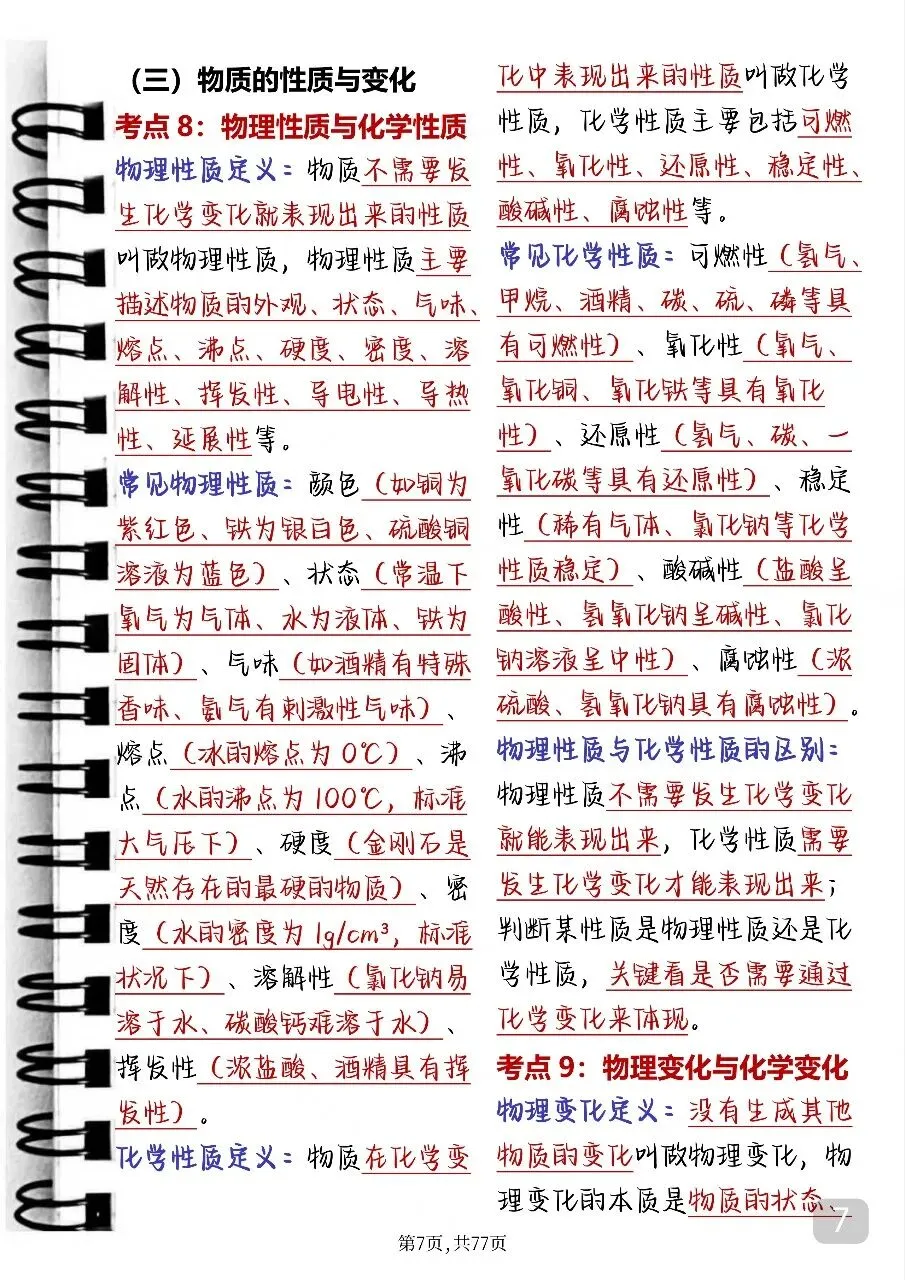 （三）物质的性质与变化
考点 8：物理性质与化学性质
物理性质定义：物质不需要发
生化学变化就表现出来的性质
叫做物理性质，物理性质主要
描述物质的外观、状态、气味、
熔点、沸点、硬度、密度、溶
解性、挥发性、导电性、导热
性、延展性等。
常见物理性质：颜色（如铜为
紫红色、铁为银白色、硫酸铜
溶液为蓝色）、状态（常温下
氧气为气体、水为液体、铁为
固体）、气味（如酒精有特殊
香味、氨气有刺激性气味）、
熔点（冰的熔点为 0℃）、沸
点（水的沸点为 100℃，标准
大气压下）、硬度（金刚石是
天然存在的最硬的物质）、密
度（水的密度为 1g/cm³，标准
状况下）、溶解性（氯化钠易
溶于水、碳酸钙难溶于水）、
挥发性（浓盐酸、酒精具有挥
发性）。
化学性质定义：物质在化学变
化中表现出来的性质叫做化学
性质，化学性质主要包括可燃
性、氧化性、还原性、稳定性、
酸碱性、腐蚀性等。
常见化学性质：可燃性（氢气、
甲烷、酒精、碳、硫、磷等具
有可燃性）、氧化性（氧气、
氧化铜、氧化铁等具有氧化
性）、还原性（氢气、碳、一
氧化碳等具有还原性）、稳定
性（稀有气体、氯化钠等化学
性质稳定）、酸碱性（盐酸呈
酸性、氢氧化钠呈碱性、氯化
钠溶液呈中性）、腐蚀性（浓
硫酸、氢氧化钠具有腐蚀性）。
物理性质与化学性质的区别：
物理性质不需要发生化学变化
就能表现出来，化学性质需要
发生化学变化才能表现出来；
判断某性质是物理性质还是化
学性质，关键看是否需要通过
化学变化来体现。
考点 9：物理变化与化学变化
物理变化定义：没有生成其他
物质的变化叫做物理变化，物
理变化的本质是物质的状态、
7
第7页,共77页